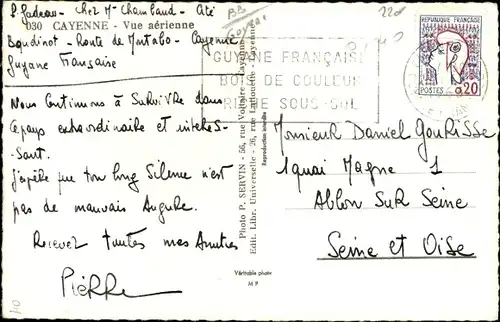 P. Gadeau - Chez Mr Chambaud - Cité
030 CAYENNE - Vue aérienne
Boudinot - Route de Montabo - Cayenne
Guyane Française
Nous Continuons à Survivre dans
ce pays extraordinaire et intéres-
sant.
J'espère que ton long Silence n'est
pas de mauvais Augure.
Recevez toutes mes Amitiés
PIERRE
Photo P. SERVIN - 56, rue Voltaire - Cayenne
Edit. Libr. Universelle - 26, rue Lalouette - Cayenne
Reproduction interdite
Véritable photo
M P
GUYANE FRANÇAISE
BOIS DE COULEUR
RICHE SOUS-SOL
REPUBLIQUE FRANÇAISE
POSTES 0,20
Monsieur Daniel Gourisse
1 quai Magne 1
Ablon Sur Seine
Seine et Oise